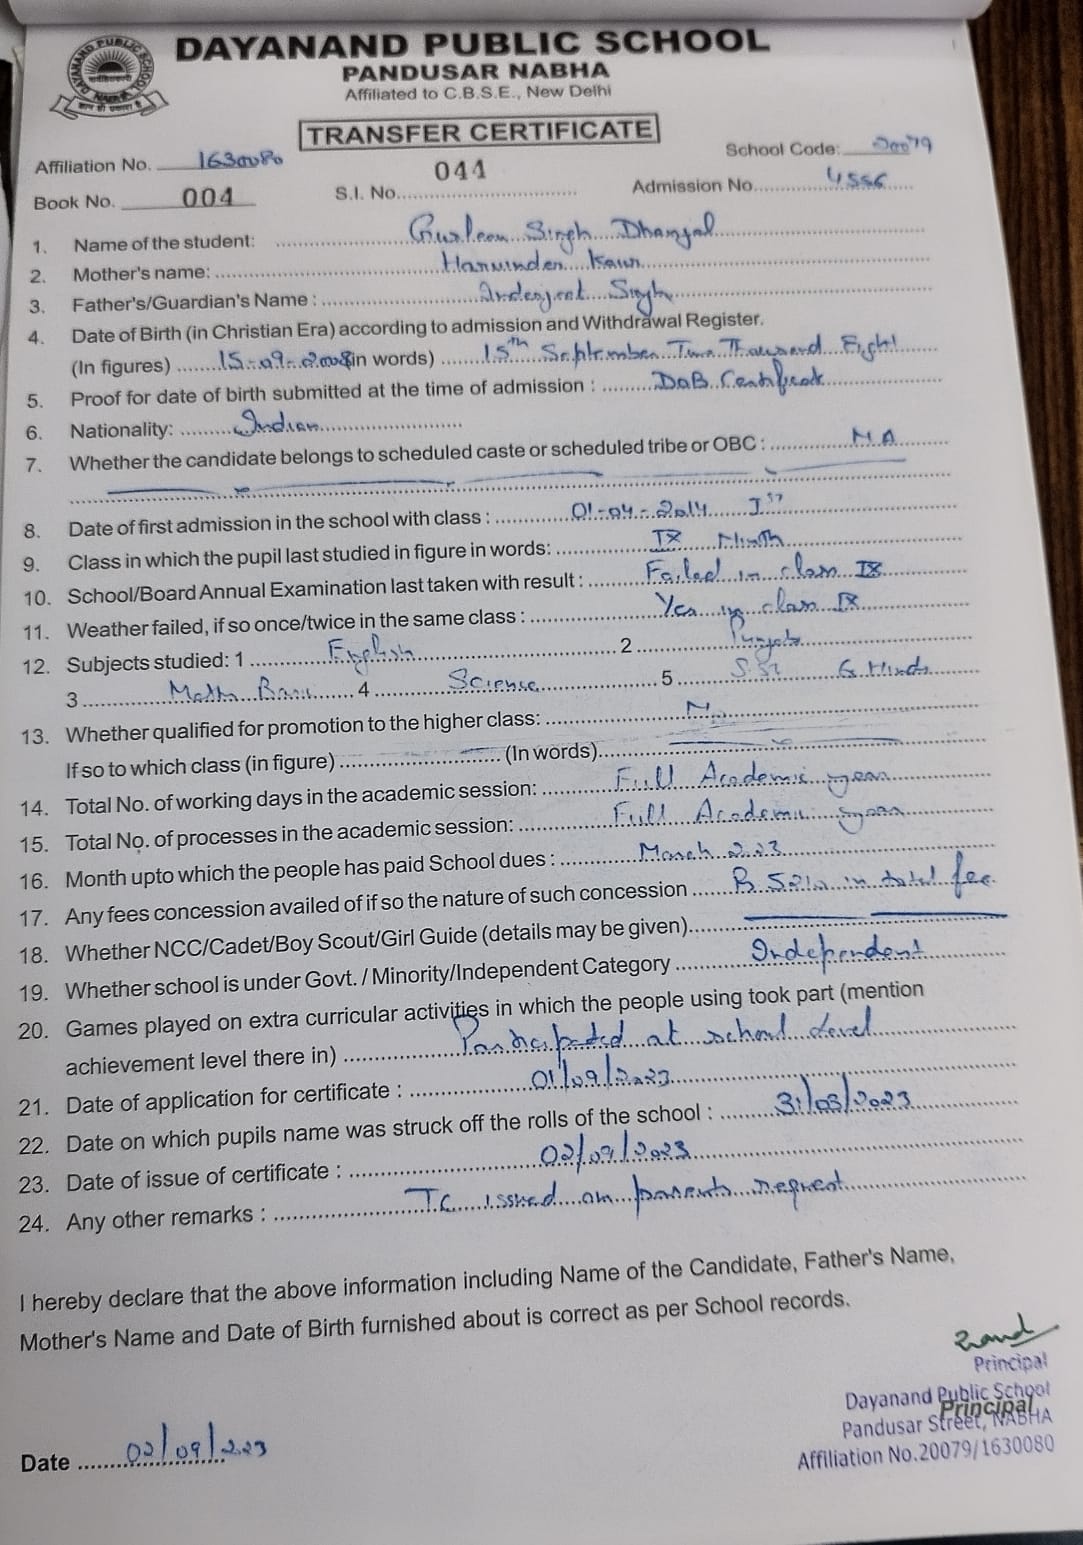 DAYANAND PUBLIC SCHOOL
PANDUSAR NABHA
Affiliated to C.B.S.E., New Delhi
TRANSFER CERTIFICATE
Affiliation No. 1630080 School Code: 20079
Book No. 004 S.I. No. 044 Admission No. 4556
1. Name of the student: Gurleen Singh Dhanjal
2. Mother's name: Harwinder Kaur
3. Father's/Guardian's Name : Inderjeet Singh
4. Date of Birth (in Christian Era) according to admission and Withdrawal Register.
(In figures) 15-09-2008 (in words) 15th September Two Thousand Eight
5. Proof for date of birth submitted at the time of admission : DOB Certificate
6. Nationality: Indian
7. Whether the candidate belongs to scheduled caste or scheduled tribe or OBC : NA
8. Date of first admission in the school with class : 01-04-2014 Ist
9. Class in which the pupil last studied in figure in words: IX Ninth
10. School/Board Annual Examination last taken with result : Failed in class IX
11. Weather failed, if so once/twice in the same class : Yes in class IX
12. Subjects studied: 1 English 2 Punjabi
3 Math Basic 4 Science 5 S.St 6 Hindi
13. Whether qualified for promotion to the higher class: No
If so to which class (in figure) (In words)
14. Total No. of working days in the academic session: Full Academic year
15. Total No. of processes in the academic session: Full Academic year
16. Month upto which the people has paid School dues : March 2023
17. Any fees concession availed of if so the nature of such concession in total fee
18. Whether NCC/Cadet/Boy Scout/Girl Guide (details may be given)
19. Whether school is under Govt. / Minority/Independent Category Independent
20. Games played on extra curricular activities in which the people using took part (mention
achievement level there in) Participated at school level
21. Date of application for certificate : 01/09/2023
22. Date on which pupils name was struck off the rolls of the school : 31/03/2023
23. Date of issue of certificate : 02/09/2023
24. Any other remarks : TC issued on parents request
I hereby declare that the above information including Name of the Candidate, Father's Name,
Mother's Name and Date of Birth furnished about is correct as per School records.
Principal
Dayanand Public School
Principal
Pandusar Street, NABHA
Affiliation No.20079/1630080
Date 02/09/2023